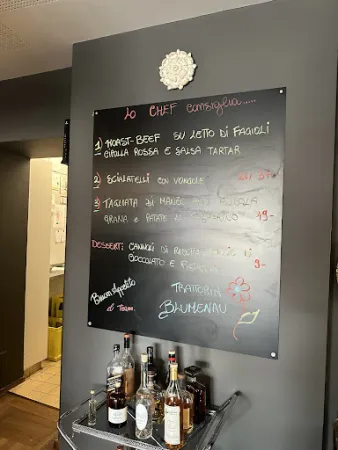 Lo CHEF consiglia.....
1) ROAST-BEEF SU LETTO DI FAGIOLI
CIPOLLA ROSSA E SALSA TARTAR
2) SCIALATELLI CON VONGOLE
3) TAGLIATA DI MANZO
GRANA E PATATE 19-
DESSERT: CANNOLI DI
CIOCCOLATO E 9-
Buon Appetito
il Team
TRATTORIA
BLUMENAU